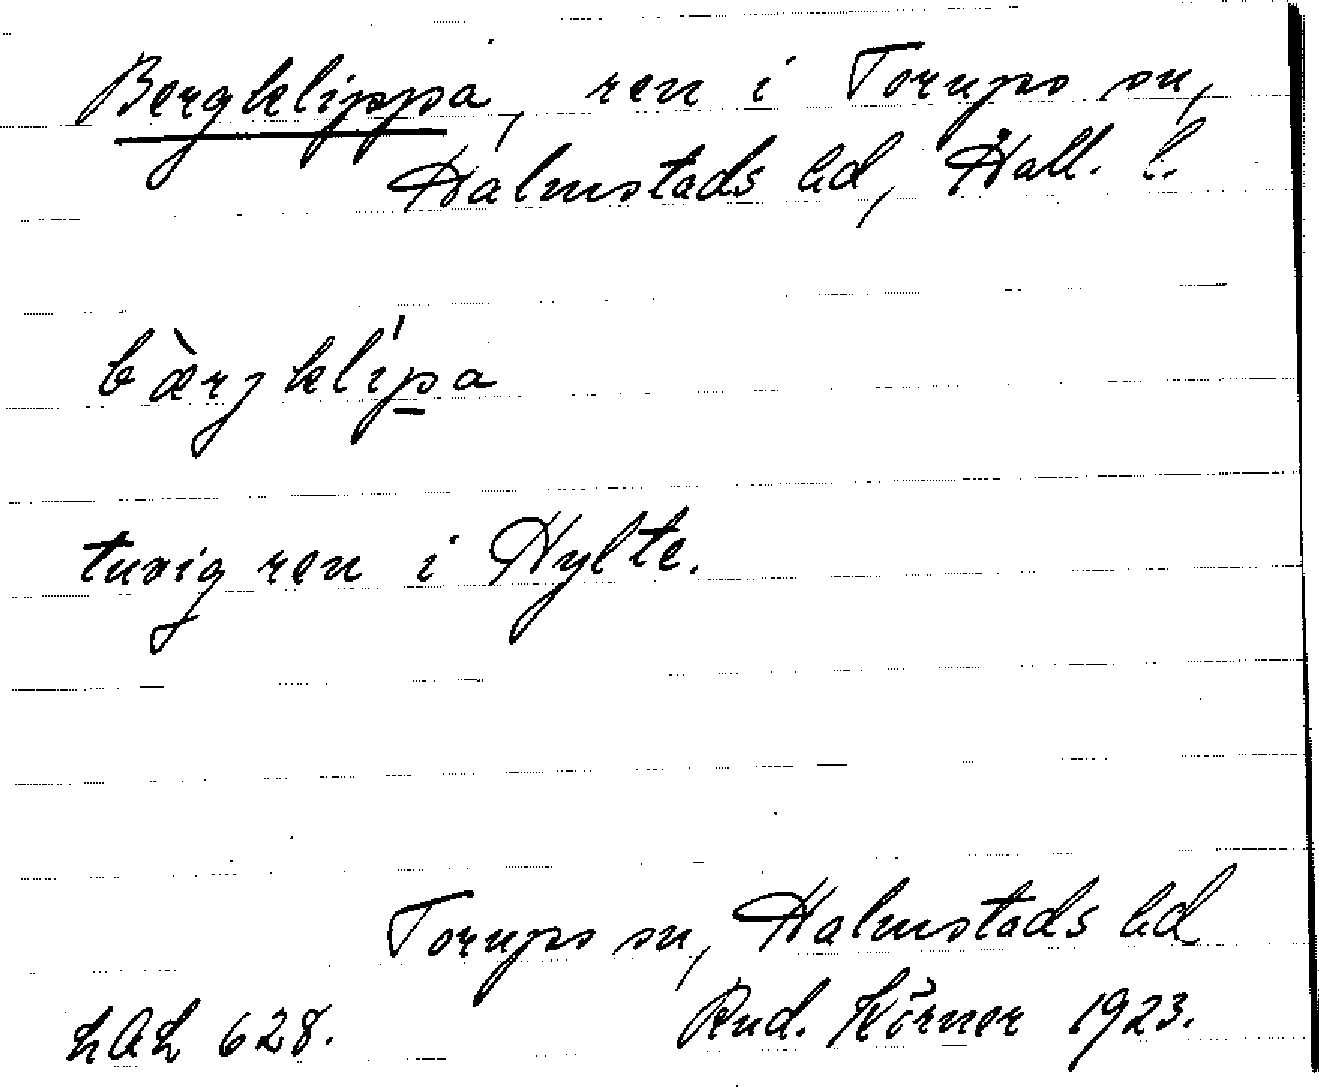 Bergklippa, ren i Torups sn,
Halmstads hd, Hall. l.
bærgklipa
tuvig ren i Hylte.
Torups sn, Halmstads hd
LAL 628. Rud. Körner 1923.